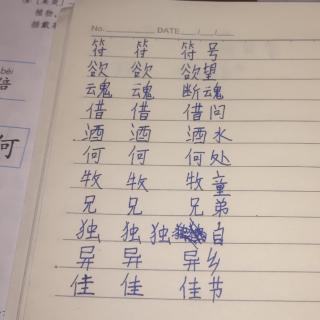 No. DATE / /
符 符 符号
欲 欲 欲望
魂 魂 断魂
借 借 借问
洒 洒 洒水
何 何 何处
牧 牧 牧童
兄 兄 兄弟
独 独 独自
异 异 异乡
佳 佳 佳节
bèi
何